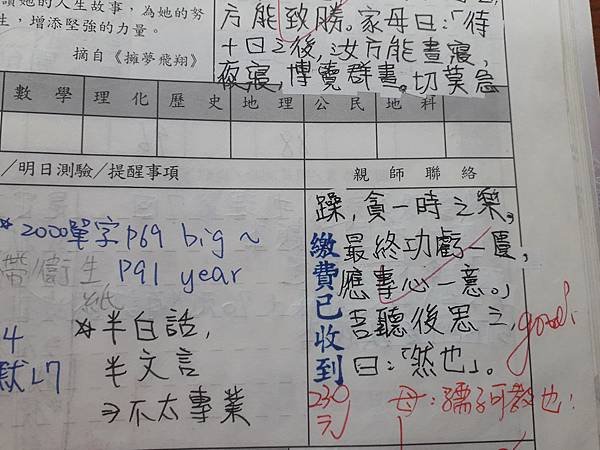 讀她的人生故事，為她的努
生，增添堅強的力量。
摘自《擁夢飛翔》
方能致勝。家母曰：「待
十日之後，汝方能晝寢，
夜寢，博覽群書。切莫急
數學 理化 歷史 地理 公民 地科
／明日測驗／提醒事項
親師聯絡
＊2000單字P69 big～
P91 year
帶衛生紙
4
默L7
＊半白話，
半文言
⇒不太專業
躁，貪一時之樂，
最終功虧一簣，
應專心一意。」
吾聽後思之，
曰：「然也」。
繳費已收到
230元
good！
母：孺子可教也！